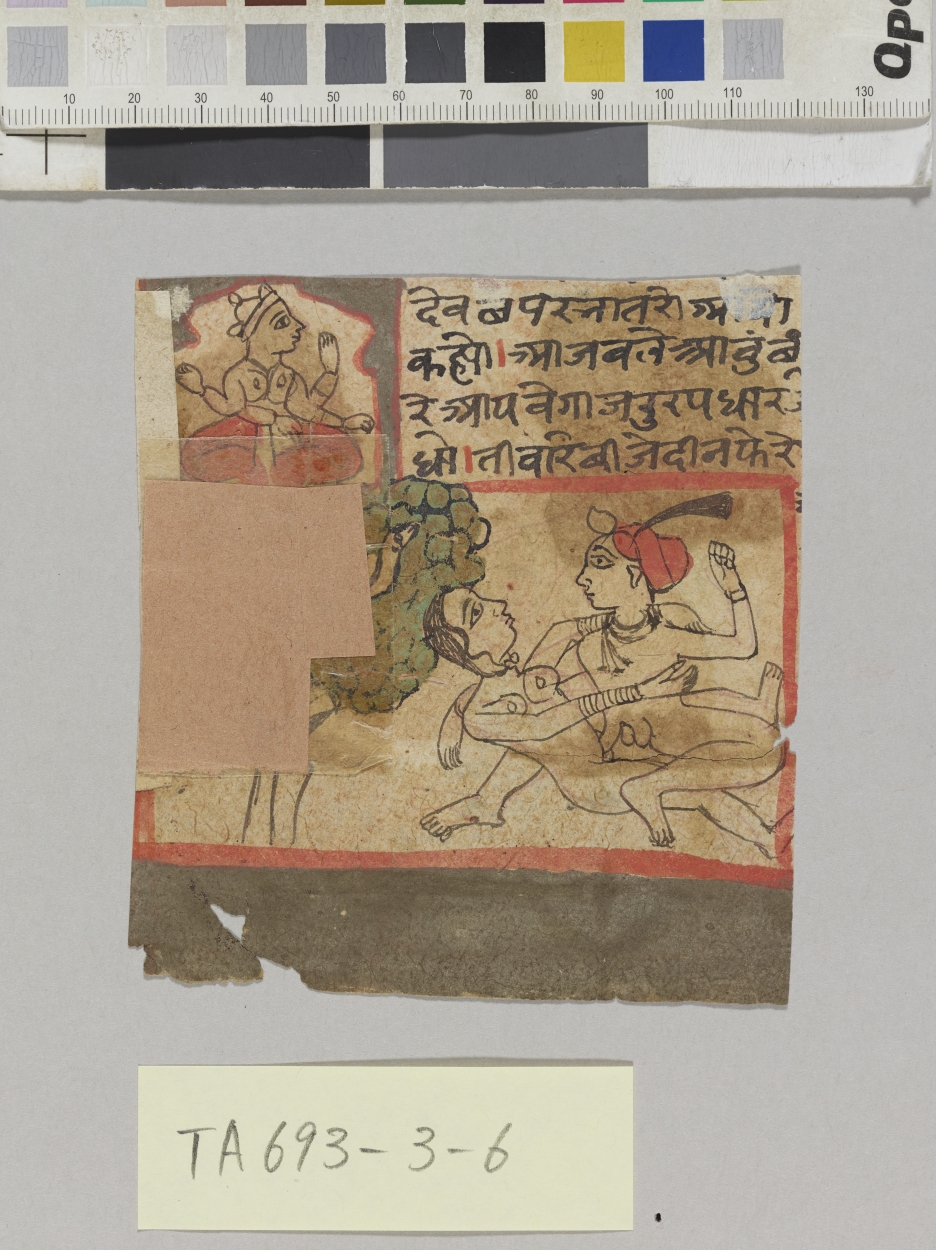 10 20 30 40 50 60 70 80 90 100 110 130
देव ळ परजातरो
कह्यो।आजवले आवुं
रे आप वेगा ज दुर प धार
धो।तीवारे बीजे दीन फेरे
TA693-3-6